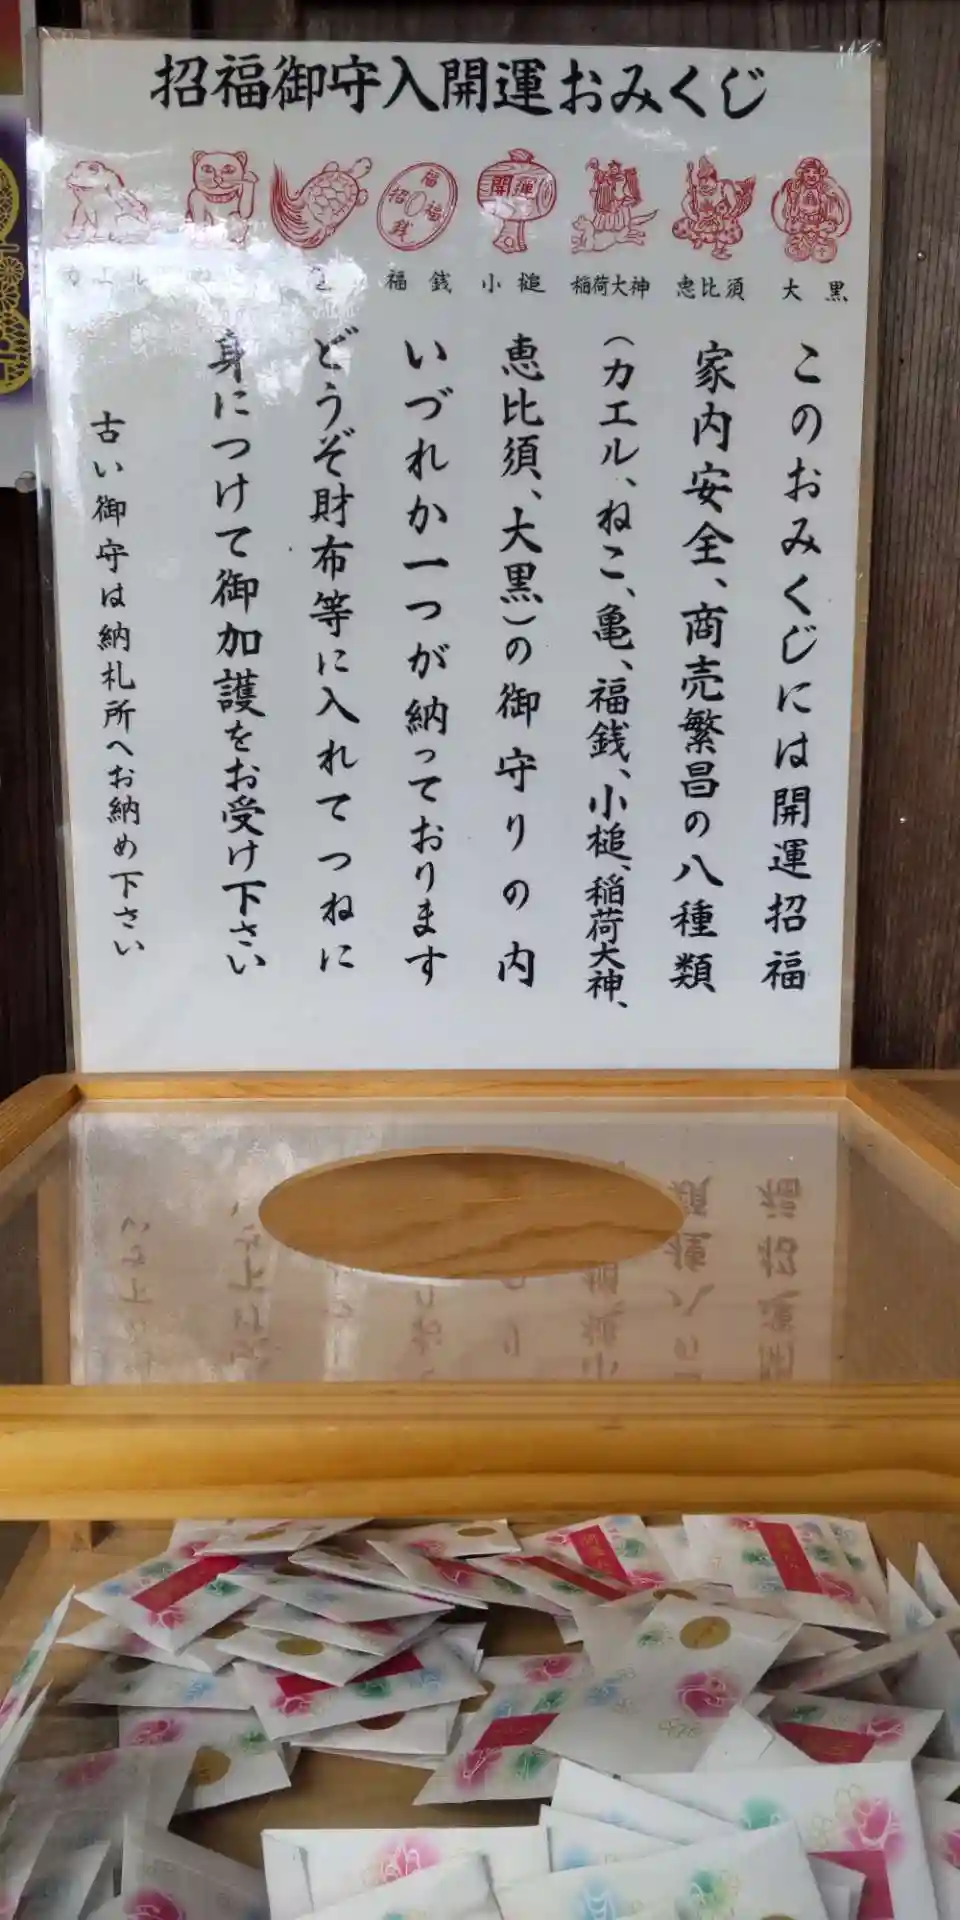 招福御守入開運おみくじ
招福福銭
開運
カエル
福銭
小槌
稲荷大神
恵比須
大黒
このおみくじには開運招福
家内安全、商売繁昌の八種類
（カエル、ねこ、亀、福銭、小槌、稲荷大神、
恵比須、大黒）の御守りの内
いづれか一つが納っております
どうぞ財布等に入れてつねに
身につけて御加護をお受け下さい
古い御守は納札所へお納め下さい